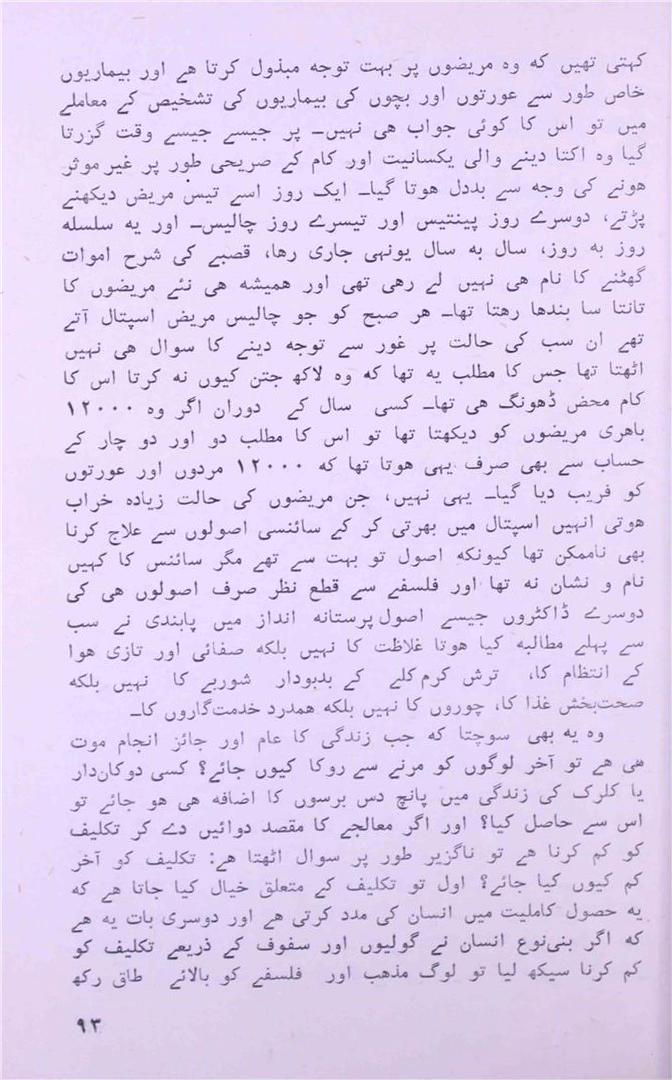 کہتی تھیں کہ وہ مریضوں پر بہت توجہ مبذول کرتا ہے اور بیماریوں
خاص طور سے عورتوں اور بچوں کی بیماریوں کی تشخیص کے معاملے
میں تو اس کا کوئی جواب ہی نہیں۔ پر جیسے جیسے وقت گزرتا
گیا وہ اکتا دینے والی یکسانیت اور کام کے صریحی طور پر غیر موثر
ہونے کی وجہ سے بددل ہوتا گیا۔ ایک روز اسے تیس مریض دیکھنے
پڑتے، دوسرے روز پینتیس اور تیسرے روز چالیس۔ اور یہ سلسلہ
روز بہ روز، سال بہ سال یونہی جاری رہا، قصبے کی شرح اموات
گھٹنے کا نام ہی نہیں لے رہی تھی اور ہمیشہ ہی نئے مریضوں کا
تانتا سا بندھا رہتا تھا۔ ہر صبح کو جو چالیس مریض اسپتال آتے
تھے ان سب کی حالت پر غور سے توجہ دینے کا سوال ہی نہیں
اٹھتا تھا جس کا مطلب یہ تھا کہ وہ لاکھ جتن کیوں نہ کرتا اس کا
کام محض ڈھونگ ہی تھا۔ کسی سال کے دوران اگر وہ ۱۲۰۰۰
باہری مریضوں کو دیکھتا تھا تو اس کا مطلب دو اور دو چار کے
حساب سے بھی صرف یہی ہوتا تھا کہ ۱۲۰۰۰ مردوں اور عورتوں
کو فریب دیا گیا۔ یہی نہیں، جن مریضوں کی حالت زیادہ خراب
ہوتی انہیں اسپتال میں بھرتی کر کے سائنسی اصولوں سے علاج کرنا
بھی ناممکن تھا کیونکہ اصول تو بہت سے تھے مگر سائنس کا کہیں
نام و نشان نہ تھا اور فلسفے سے قطع نظر صرف اصولوں ہی کی
دوسرے ڈاکٹروں جیسے اصول پرستانہ انداز میں پابندی نے سب
سے پہلے مطالبہ کیا ہوتا غلاظت کا نہیں بلکہ صفائی اور تازی ہوا
کے انتظام کا، ترش کرم کلے کے بدبودار شوربے کا نہیں بلکہ
صحت‌بخش غذا کا، چوروں کا نہیں بلکہ ہمدرد خدمت‌گاروں کا۔
وہ یہ بھی سوچتا کہ جب زندگی کا عام اور جائز انجام موت
ہی ہے تو آخر لوگوں کو مرنے سے روکا کیوں جائے؟ کسی دوکان‌دار
یا کلرک کی زندگی میں پانچ دس برسوں کا اضافہ ہی ہو جائے تو
اس سے حاصل کیا؟ اور اگر معالجے کا مقصد دوائیں دے کر تکلیف
کو کم کرنا ہے تو ناگزیر طور پر سوال اٹھتا ہے: تکلیف کو آخر
کم کیوں کیا جائے؟ اول تو تکلیف کے متعلق خیال کیا جاتا ہے کہ
یہ حصول کاملیت میں انسان کی مدد کرتی ہے اور دوسری بات یہ ہے
کہ اگر بنی‌نوع انسان نے گولیوں اور سفوف کے ذریعے تکلیف کو
کم کرنا سیکھ لیا تو لوگ مذہب اور فلسفے کو بالائے طاق رکھ
۹۳